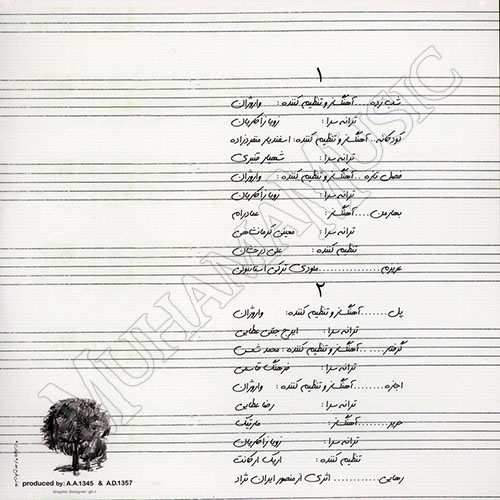 ۱
شب زده.....آهنگساز و تنظیم کننده: واروژان
ترانه سرا: زویا زاکاریان
کودکانه..آهنگساز و تنظیم کننده: اسفندیار منفردزاده
ترانه سرا: شهیار قنبری
فصل تازه..آهنگساز و تنظیم کننده: واروژان
ترانه سرا: زویا زاکاریان
بهار من.....آهنگساز: عمادرام
ترانه سرا: معینی کرمانشاهی
تنظیم کننده: علی درخشان
عزیزم..............ملودی ترکی استانبولی
۲
پل.......آهنگساز و تنظیم کننده: واروژان
ترانه سرا: ایرج جنتی عطایی
گرفتار......آهنگساز و تنظیم کننده: محمد شمس
ترانه سرا: فرهنگ قاسمی
اجازه.......آهنگساز و تنظیم کننده: واروژان
ترانه سرا: رضا عطایی
حریر.......آهنگساز: مارتیک
ترانه سرا: زویا زاکاریان
تنظیم کننده: اریک ارکانت
رهایی............اثری از منصور ایران نژاد
produced by: A.A.1345 & A.D.1357
Graphic Designer: gh.r
MUHAMAMUSIC